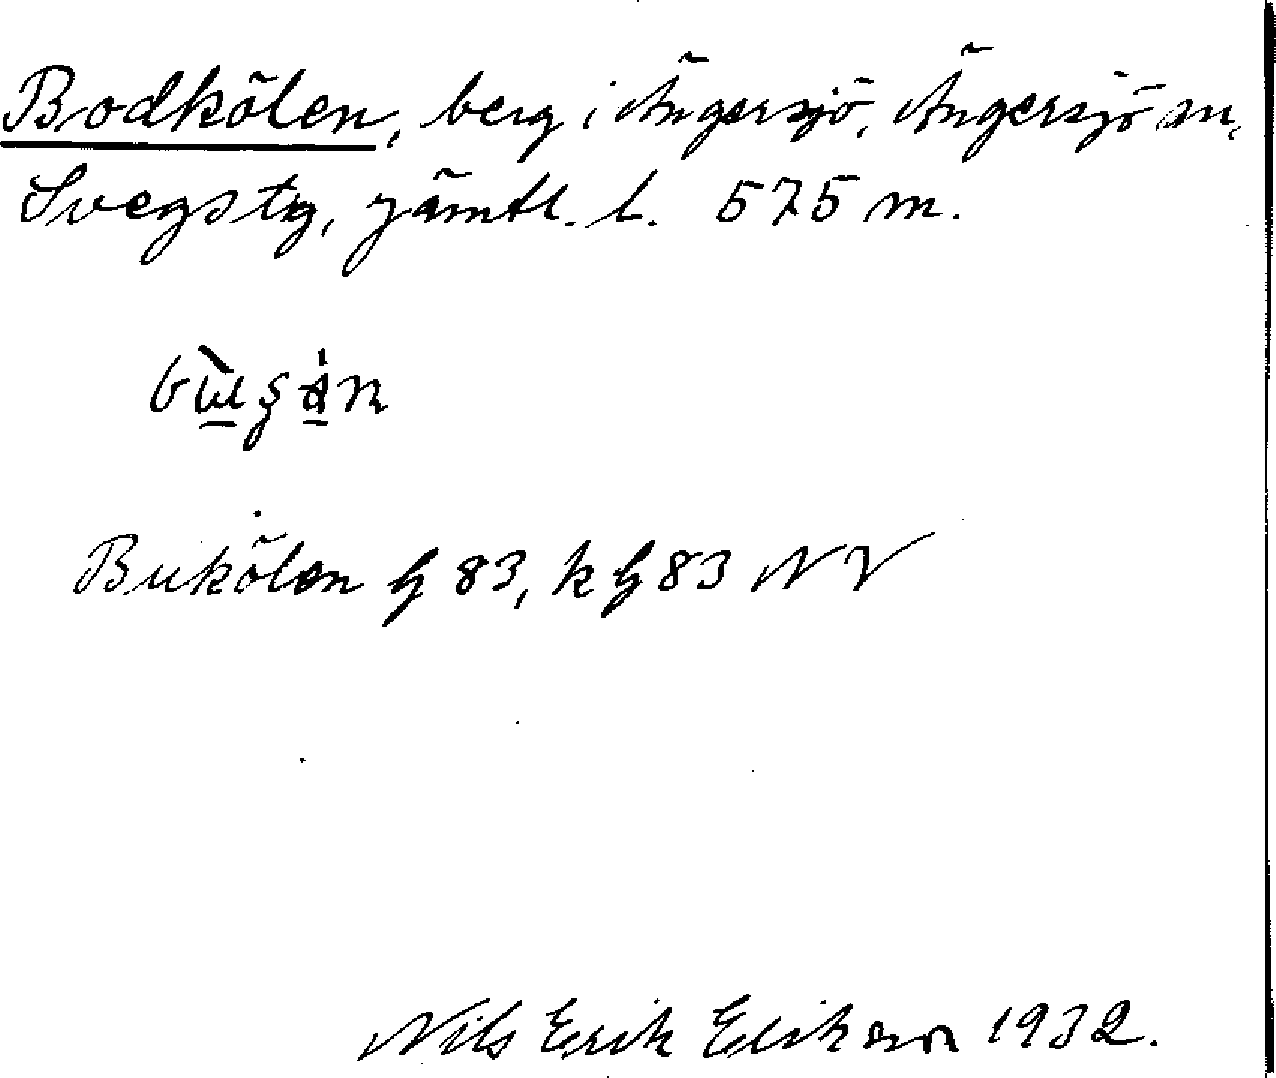 Bodkölen, berg i Ängersjö, Ängersjö sn,
Svegs tg, Jämtl. l. 575 m.
Bukölen G 83, k G 83 NV
Nils Erik Erikson 1932.